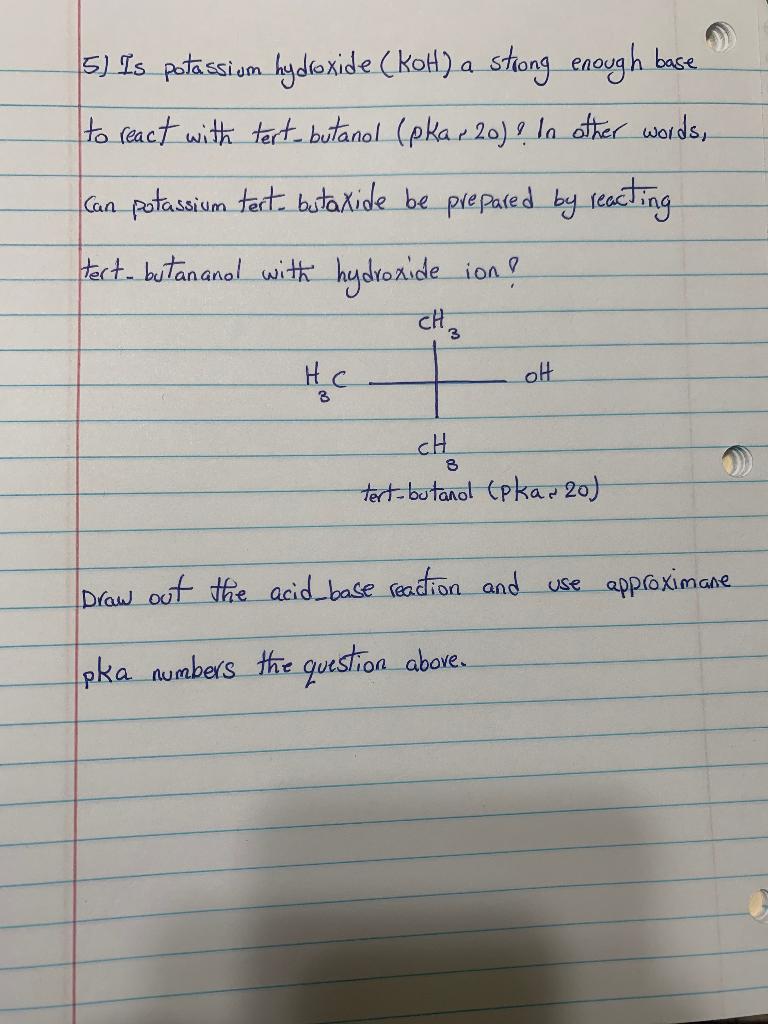 5) Is potassium hydroxide (KOH) a strong enough base
to react with tert-butanol (pka ~ 20)? In other words,
Can potassium tert-butaxide be prepared by reacting
tert-butananol with hydroxide ion?
CH3
H3C OH
CH3
tert-butanol (pka ~ 20)
Draw out the acid-base reaction and use approximane
pka numbers the question above.